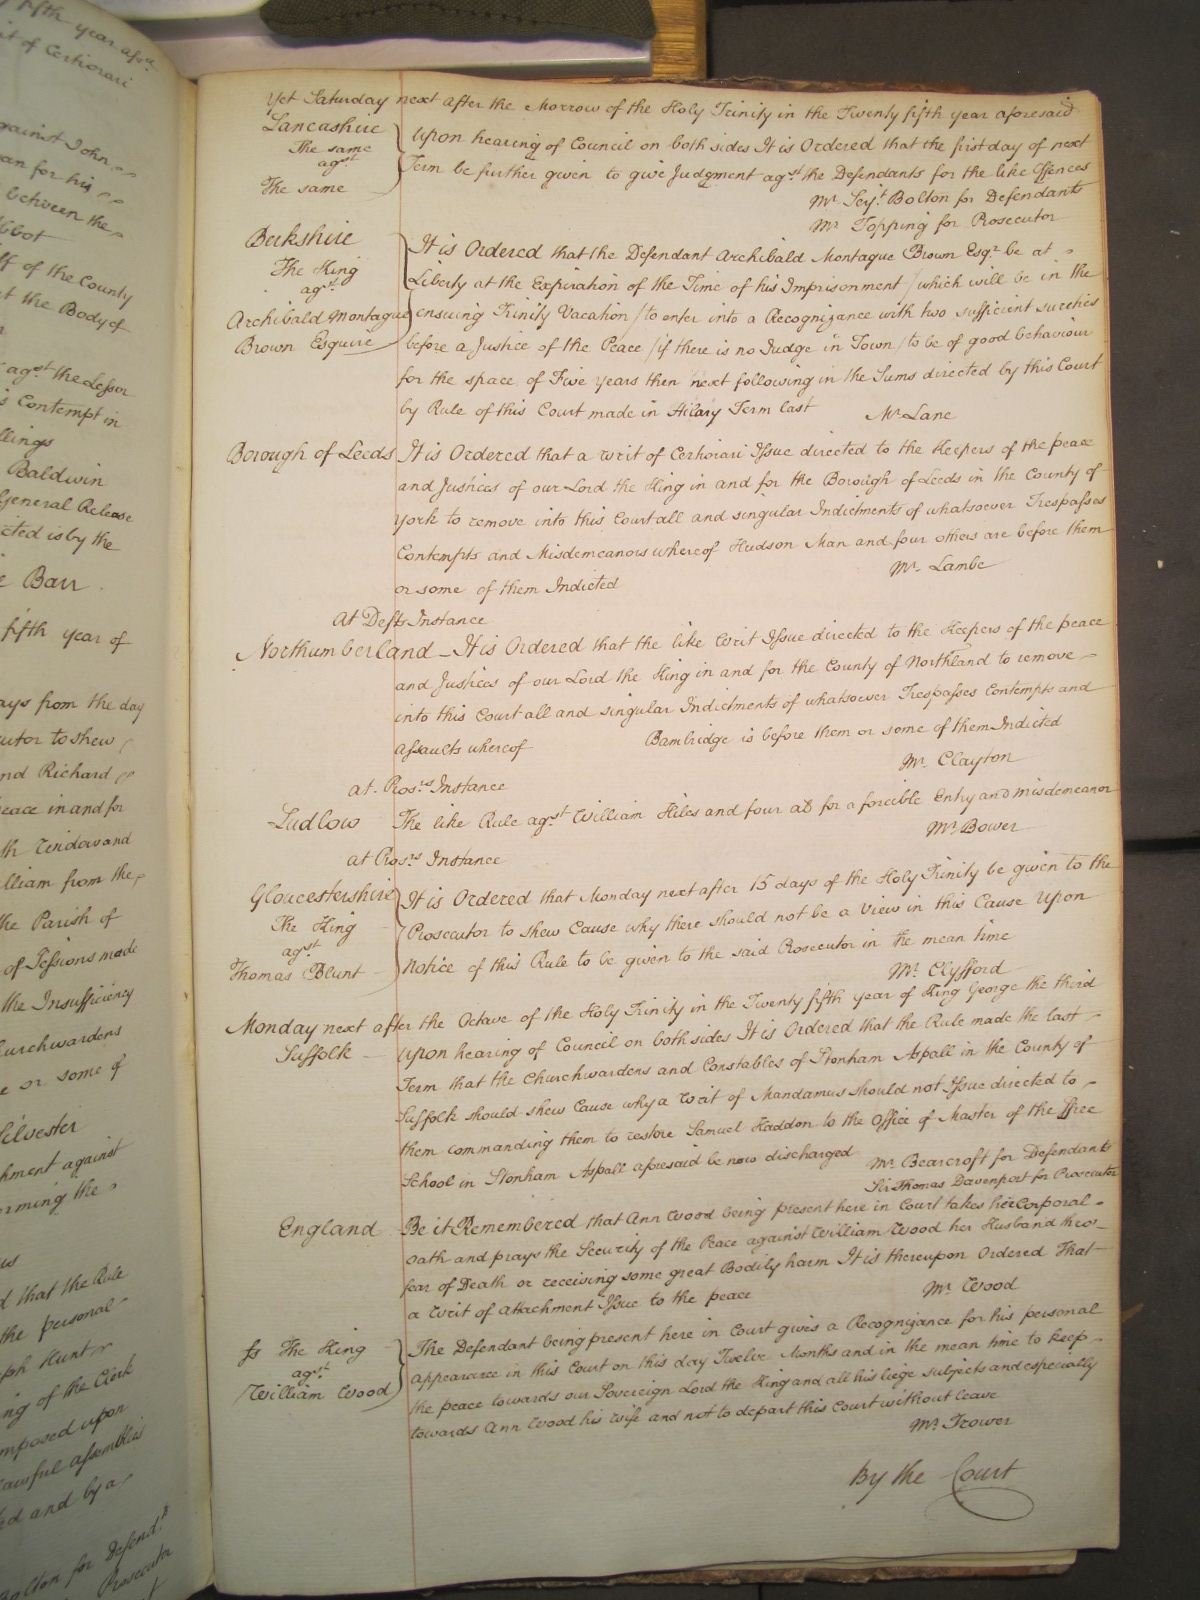 fifth year afsd.
it of Certiorari
gainst John
an for his
between the
bbot
ff of the County
t the Body of
agst the Lessor
s Contempt in
llings
Baldwin
General Release
icted is by the
Barr
fifth year of
ays from the day
cutor to shew
nd Richard
peace in and for
th Widow and
lliam from the
the Parish of
of Sessions made
the Insufficiency
hurchwardens
e or some of
Silvester
chment against
orming the
d that the Rule
the personal
ph Hunt
ing of the Clerk
mposed upon
lawful assemblies
ed and by a
Bolton for Defendt.
Prosecutor
Yet Saturday next after the Morrow of the Holy Trinity in the Twenty fifth year aforesaid
Lancashire
The same
agst
The same
Upon hearing of Council on both sides It is Ordered that the first day of next
Term be further given to give Judgment agst. the Defendants for the like Offences
Mr. Serjt. Bolton for Defendants
Mr. Topping for Prosecutor
Berkshire
The King
agst
Archibald Montague
Brown Esquire
It is Ordered that the Defendant Archibald Montague Brown Esqr. be at
Liberty at the Expiration of the Time of his Imprisonment /which will be in the
ensuing Trinity Vacation/ to enter into a Recognizance with two sufficient sureties
before a Justice of the Peace /if there is no Judge in Town/ to be of good behaviour
for the space of Five years then next following in the Sums directed by this Court
by Rule of this Court made in Hilary Term last
Mr. Lane
Borough of Leeds It is Ordered that a Writ of Certiorari Issue directed to the Keepers of the peace
and Justices of our Lord the King in and for the Borough of Leeds in the County of
York to remove into this Court all and singular Indictments of whatsoever Trespasses
Contempts and Misdemeanors whereof Hudson Man and four others are before them
or some of them Indicted
Mr. Lambe
at Defts Instance
Northumberland It is Ordered that the like Writ Issue directed to the Keepers of the peace
and Justices of our Lord the King in and for the County of Northland to remove
into this Court all and singular Indictments of whatsoever Trespasses Contempts and
assaults whereof Bambridge is before them or some of them Indicted
Mr. Clayton
at Prosrs. Instance
Ludlow The like Rule agst William Hiles and four als for a forcible Entry and misdemeanor
Mr. Bower
at Prosrs. Instance
Gloucestershire
The King
agst
Thomas Blunt
It is Ordered that Monday next after 15 days of the Holy Trinity be given to the
Prosecutor to shew Cause why there should not be a View in this Cause Upon
Notice of this Rule to be given to the said Prosecutor in the mean time
Mr. Clyfford
Monday next after the Octave of the Holy Trinity in the Twenty fifth year of King George the third
Suffolk Upon hearing of Council on both sides It is Ordered that the Rule made the last
Term that the Churchwardens and Constables of Stonham Aspall in the County of
Suffolk should shew Cause why a Writ of Mandamus should not Issue directed to
them commanding them to restore Samuel Haddon to the Office of Master of the ffree
School in Stonham Aspall aforesaid be now discharged
Mr. Bearcroft for Defendants
Sir Thomas Davenport for Prosecutor
England Be it Remembered that Ann Wood being present here in Court takes her Corporal
Oath and prays the Security of the Peace against William Wood her Husband thro
fear of Death or receiving some great Bodily harm It is thereupon Ordered That
a Writ of Attachment Issue to the peace
Mr. Wood
fs The King
agst.
William Wood
The Defendant being present here in Court gives a Recognizance for his personal
appearance in this Court on this day Twelve Months and in the mean time to keep
the peace towards our Sovereign Lord the King and all his liege subjects and especially
towards Ann Wood his Wife and not to depart this Court without leave
Mr. Trower
By the Court